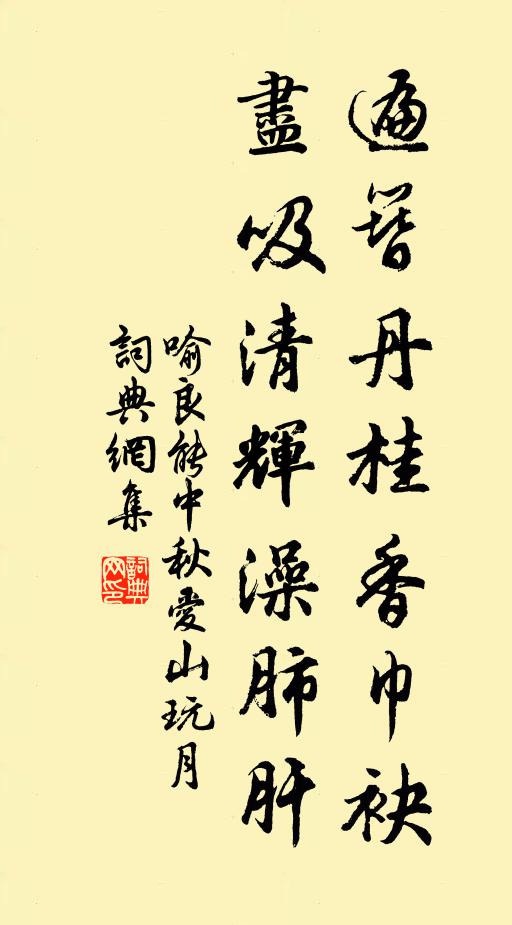 遍簪丹桂香巾袂
盡吸清輝澡肺肝
喻良能中秋愛山玩月
詞典網集
詞典網印